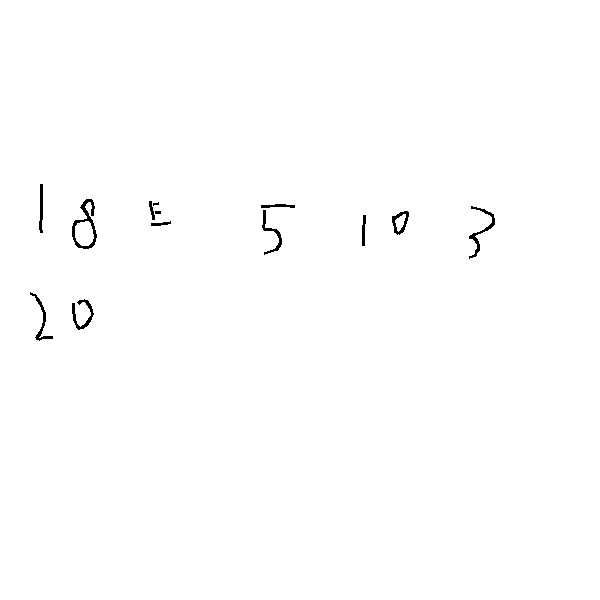 18 = 5 10 3
20